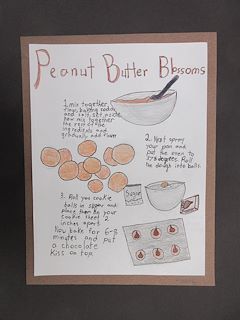 Peanut Butter Blossoms
1. mix together,
baking soda,
and salt, set aside,
now mix together
the rest of the
ingredients and
gradually add flour
2. Next spray
your pan and
put the oven to
375 degrees. Roll
the dough into balls.
Sugar
3. Roll you cookie
balls in sugar and
place them on your
cookie sheet 2
inches apart.
Now bake for 6-8
minutes and put
a chocolate
Kiss on top